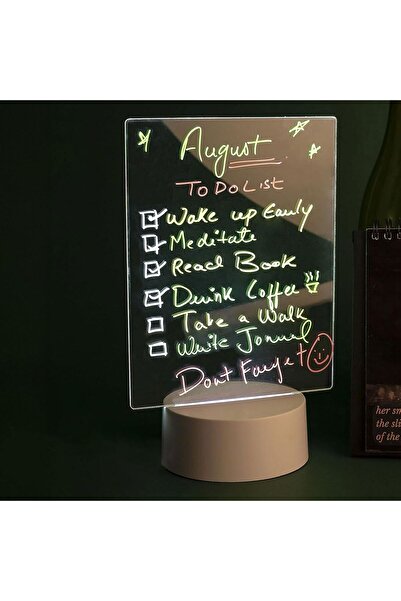 August
To Do List
Wake up Early
Meditate
Read Book
Drink Coffee
Take a Walk
Write Jornal
Dont Forget
her sm
the sli
of the